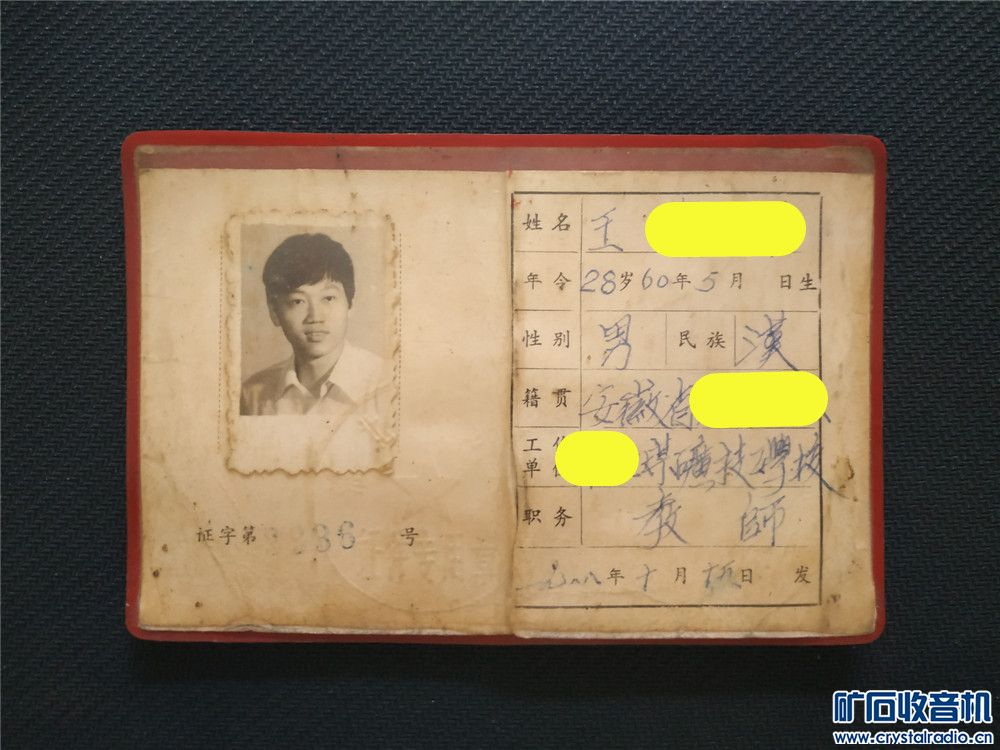 证字第 336 号
姓名 王
年令 28岁60年5月 日生
性别 男 民族 漢
籍贯 安徽省
工作单位 矿技學校
职务 教師
一九八八年十月 日 发
矿石收音机
www.crystalradio.cn